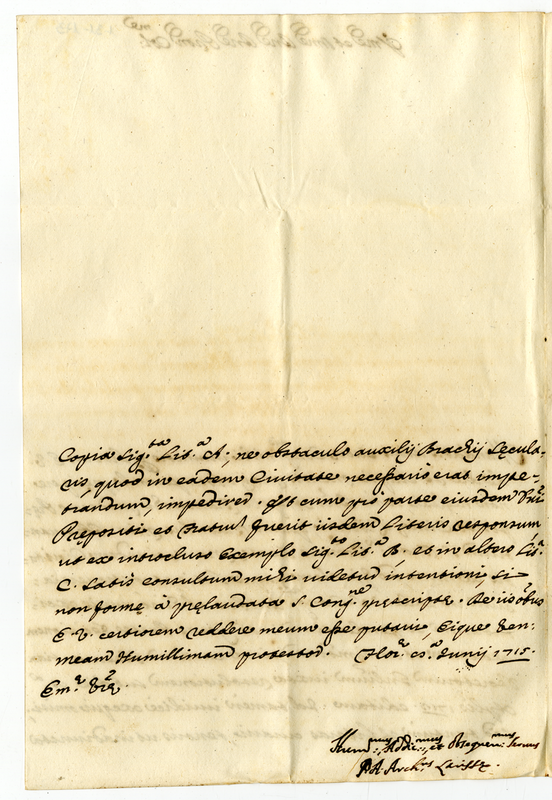 Copia sig.ta Lit.a A., ne obstaculo auxilij Brachij Secula-
ris, quod in eadem Civitate necessario erat impe-
trandum, impediret. At cum pro parte eiusdem
Prępositi et fuerit iisdem Literis responsum
ut ex introcluso Exemplo sig.to Lit.a B. et in altero Lit.a
C. Satis consultum mihi videtur intentioni, si
non formę à pręlaudata S. Cong.ne pręscriptę. De iis
E. V. certiorem reddere meum esse putavi, Eique
meam Humillimam protestor. Flor.ę Junij 1715.
Em.ę V.rę
Hum.mus, Addic.mus, et Obsequen.mus Servus
Arch.us